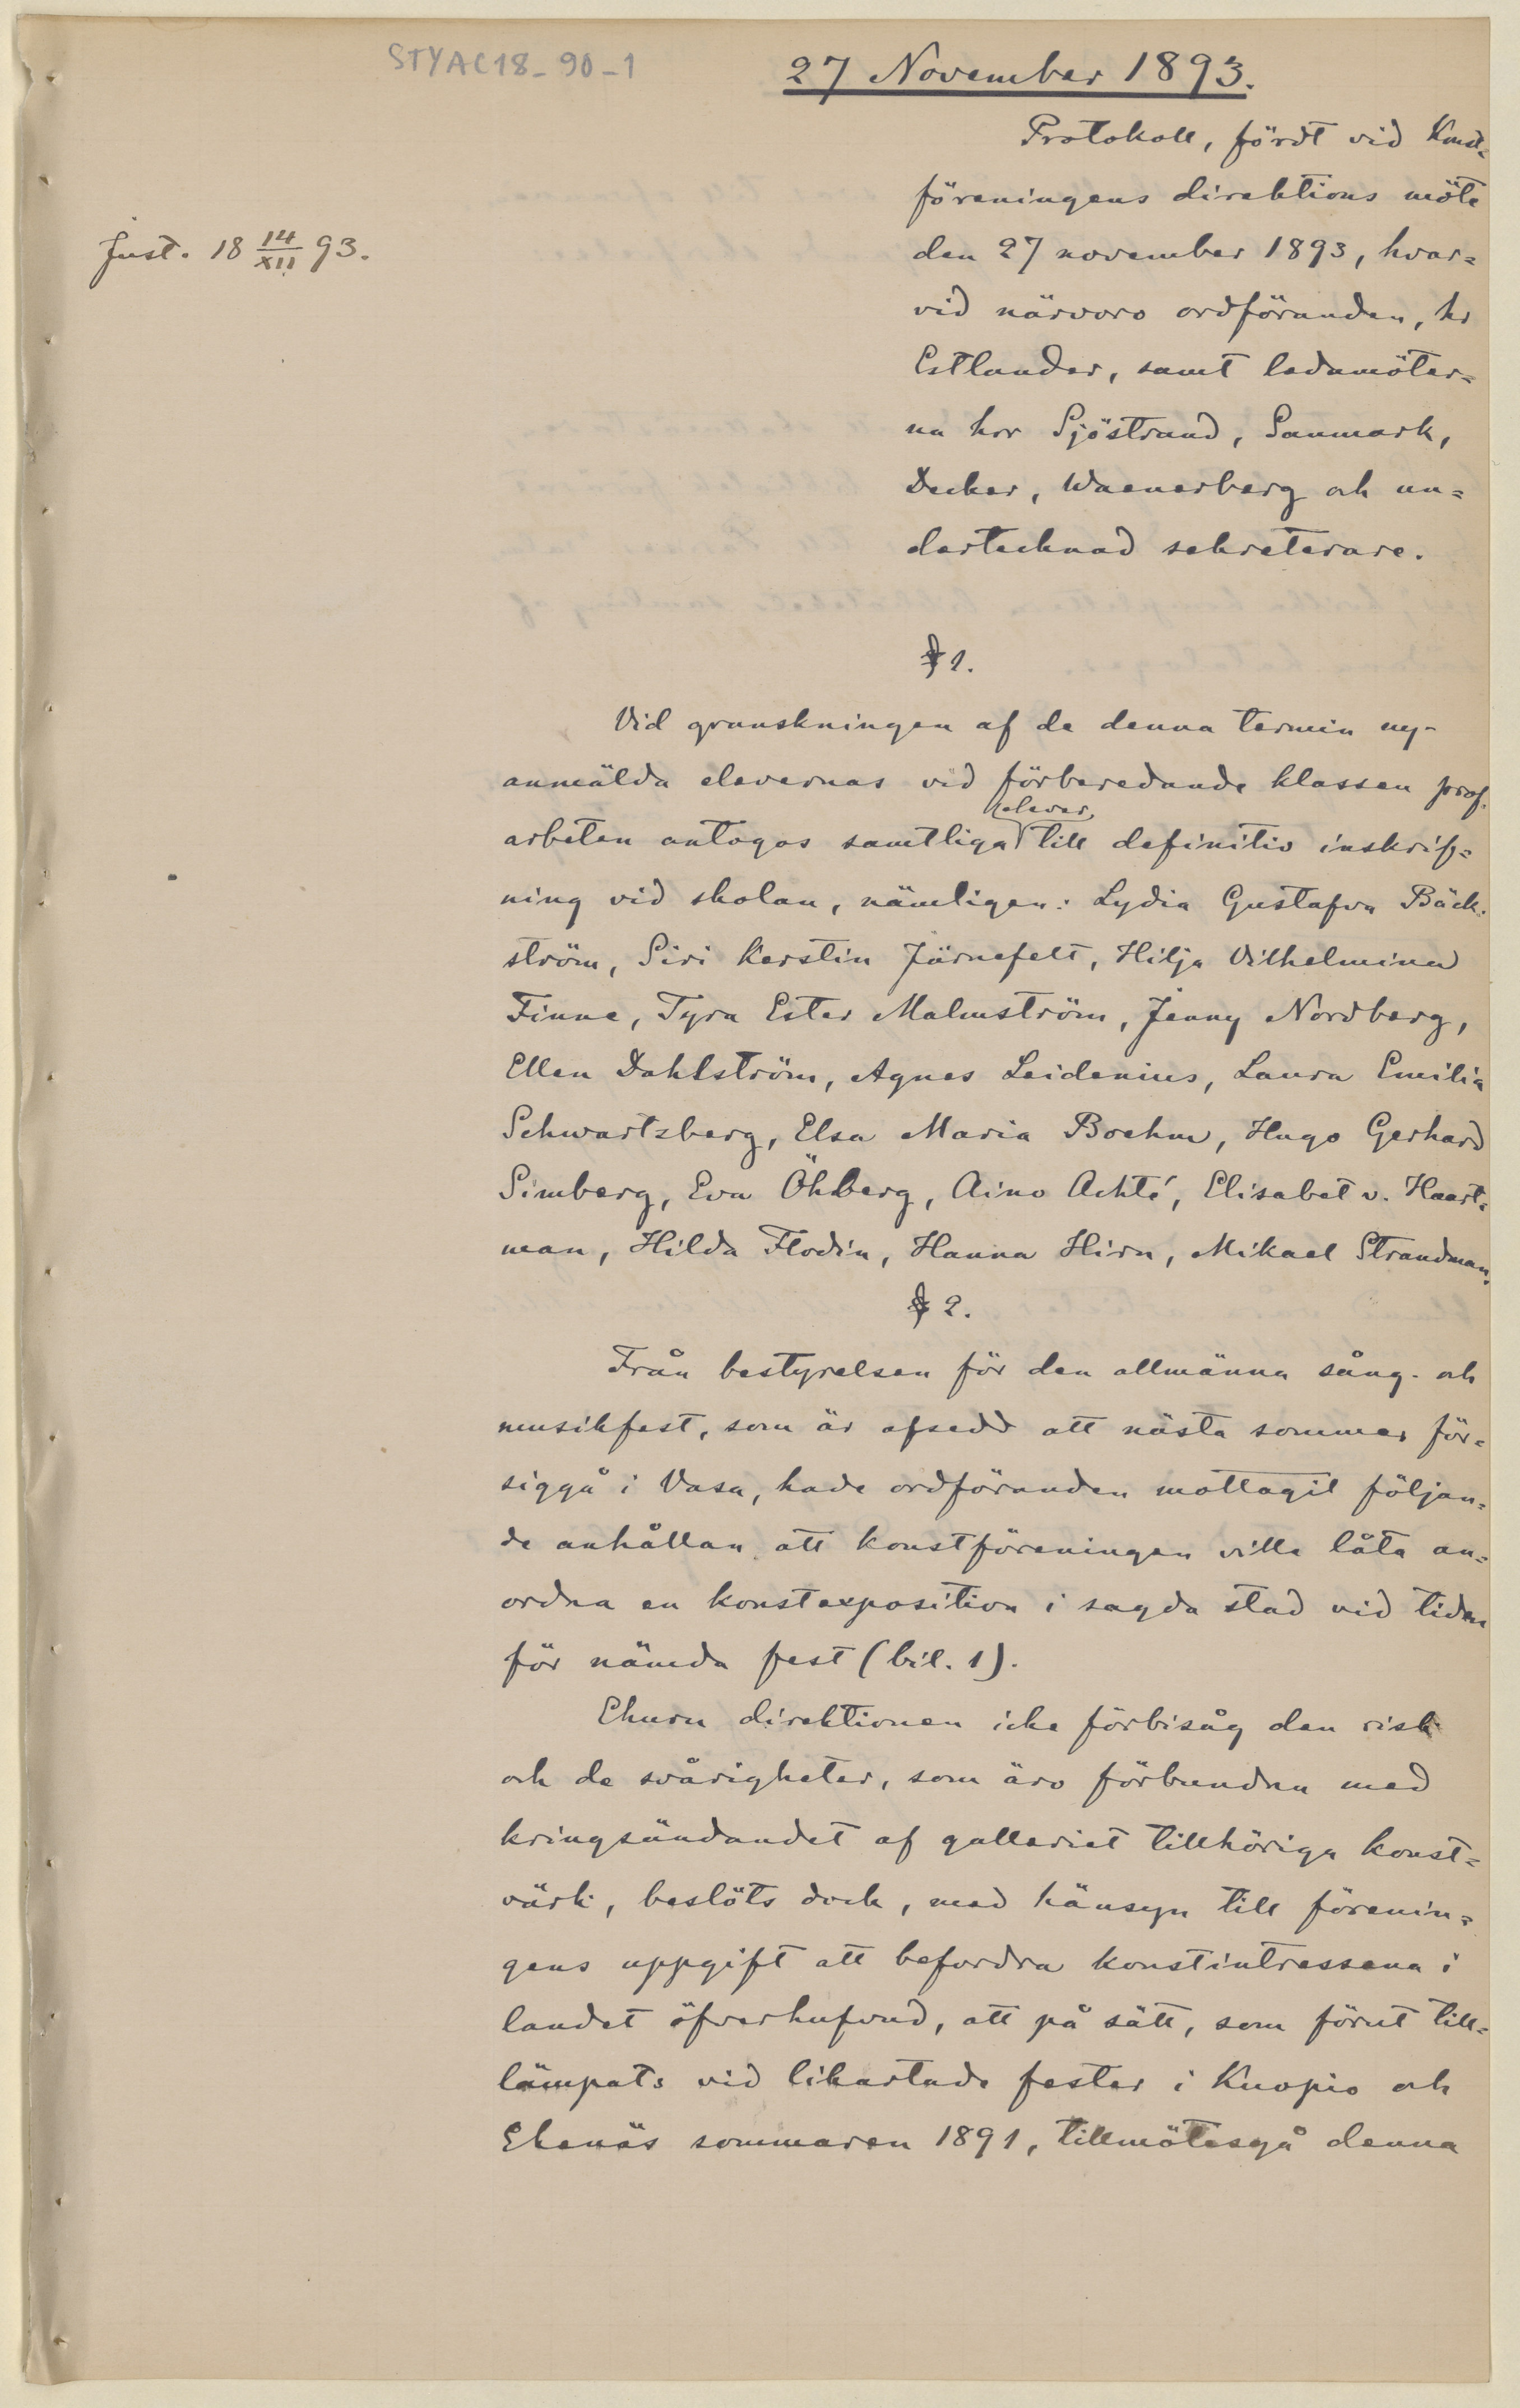 STYAC18-90-1
27 November 1893.
Protokoll, fördt vid Konst=
föreningens direktions möte
Just. 18 14/XII 93.
den 27 november 1893, hvar=
vid närvoro ordföranden, hr
Estlander, samt ledamöter=
na hrr Sjöstrand, Sanmark,
Decker, Waenerberg och un=
dertecknad sekreterare.
§ 1.
Vid granskningen af de denna termin ny-
anmälda elevernas vid förberedande klassen prof-
elever,
arbeten antogos samtliga till definitiv inskrif=
ning vid skolan, nämligen: Lydia Gustafva Bäck-
ström, Siri Kerstin Järnefelt, Hilja Vilhelmina
Finne, Tyra Ester Malmström, Jenny Nordberg,
Ellen Dahlström, Agnes Leidenius, Laura Emilia
Schwartzberg, Elsa Maria Boehm, Hugo Gerhard
Simberg, Eva Öhberg, Aino Achté, Elisabet v. Haart=
man, Hilda Flodin, Hanna Hirn, Mikael Strandman.
§ 2.
Från bestyrelsen för den allmänna sång- och
musikfest, som är afsedd att nästa sommar för=
siggå i Vasa, hade ordföranden mottagit följan=
de anhållan att konstföreningen ville låta an=
ordna en konstexposition i sagda stad vid tiden
för nämda fest (bil. 1).
Ehuru direktionen icke förbisåg den risk
och de svårigheter, som äro förbundna med
kringsändandet af galleriet tillhöriga konst=
värk, beslöts dock, med hänsyn till förenin=
gens uppgift att befordra konstintressena i
landet öfverhufvud, att på sätt, som förut till=
lämpats vid likartade fester i Kuopio och
Ekenäs sommaren 1891, tillmötesgå denna